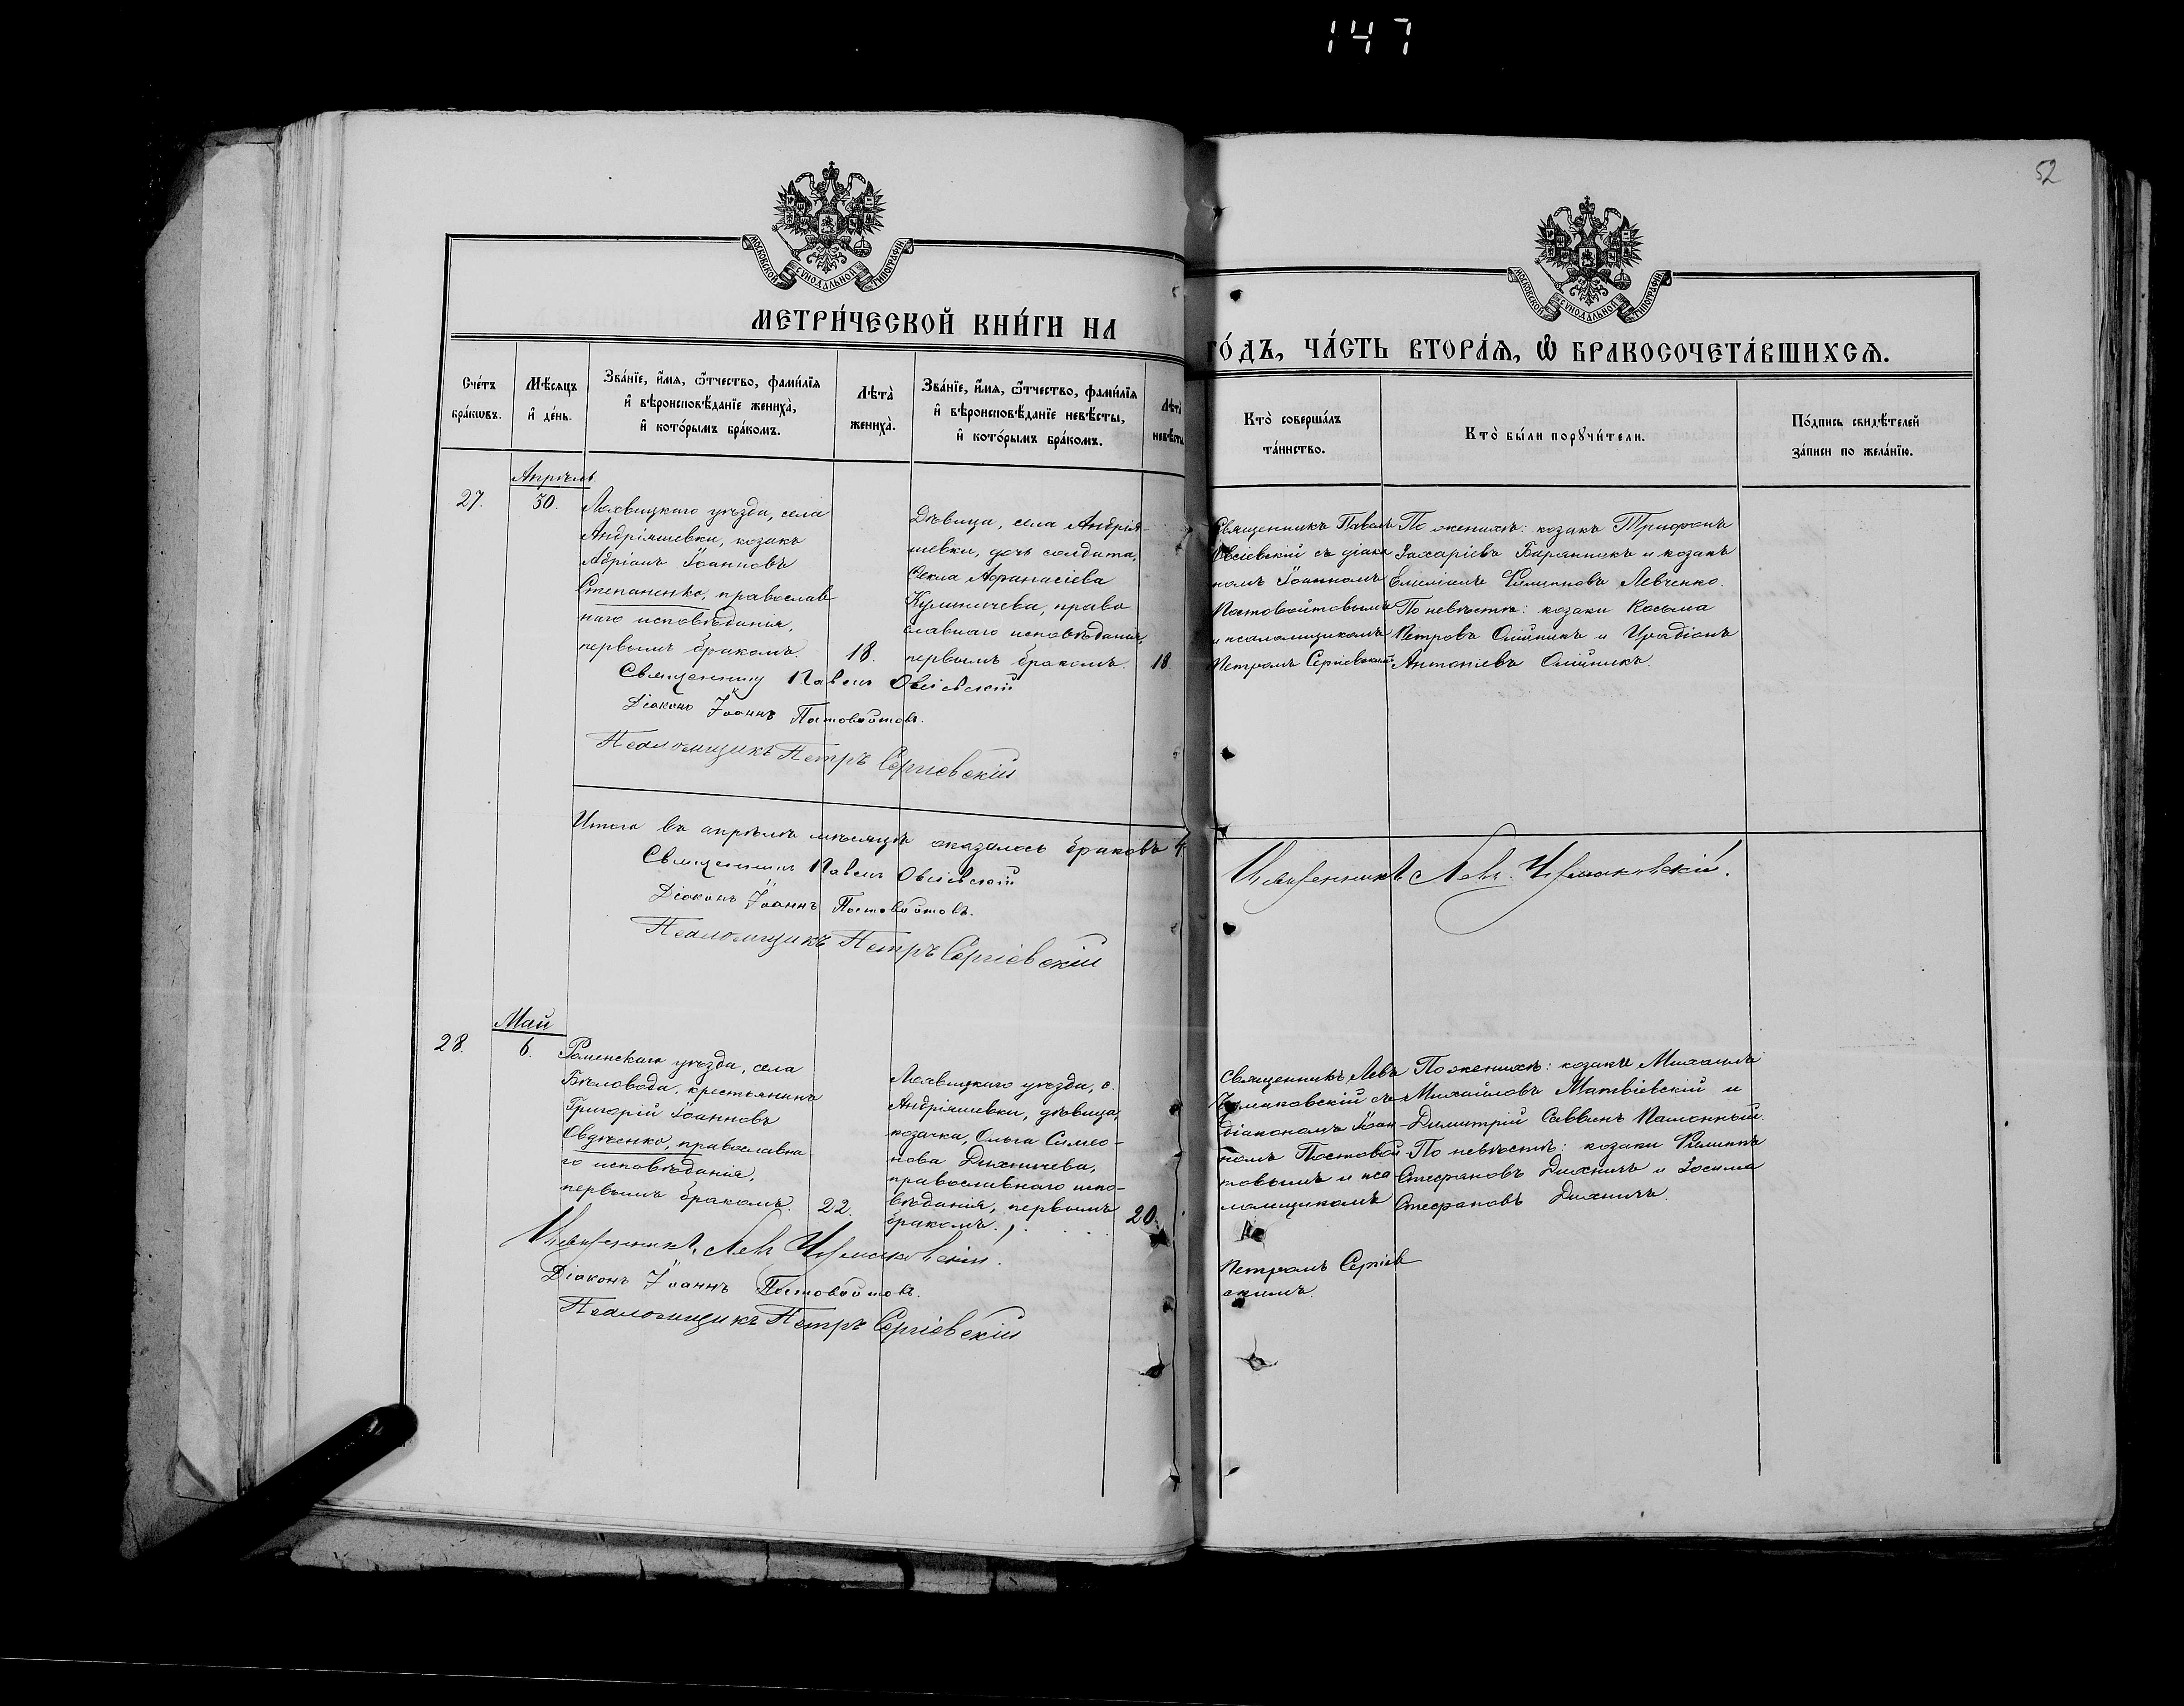 147
52
МОСКОВСКОЙ СѴНОДАЛЬНОЙ ТИПОГРАФІИ
МОСКОВСКОЙ СѴНОДАЛЬНОЙ ТИПОГРАФІИ
МЕТРИ́ЧЕСКОЙ КНИ́ГИ НА
ГО́ДЪ, ЧА́СТЬ ВТОРА́Ѧ, Ѿ БРАКОСОЧЕТА́ВШИХСѦ.
Сче́тъ
бра́кѡвъ.
Мѣ́сѧцъ
и҆ де́нь.
Зва́нїе, и҆́мѧ, ѻ҆́тчество, фами́лїѧ
и҆ вѣроисповѣ́данїе жениха̀,
и҆ кото́рымъ бра́комъ.
Лѣта̀
жениха̀.
Зва́нїе, и҆́мѧ, ѻ҆́тчество, фами́лїѧ
и҆ вѣроисповѣ́данїе невѣ́сты,
и҆ кото́рымъ бра́комъ.
Лѣта̀
невѣ́сты
Кто̀ соверша́лъ
та́инство.
Кто̀ бы́ли порꙋчи́тели.
По́дпись свидѣ́телей
за́писи по жела́нїю.
Апрѣль
27.
30.
Лохвицкаго уѣзда, села
Андріяшевки, козакъ
Адріанъ Іоанновъ
Степаненко, православ
наго исповѣданія,
первымъ бракомъ.
18.
Дѣвица, села Андрія-
шевки, дочь солдата,
Ѳекла Афанасіева
Куликичева, право
славнаго исповѣданія,
первымъ бракомъ.
18
Священникъ Павелъ
Овсіевскій съ діако
номъ Іоанномъ
Постовойтовымъ
и псаломщикомъ
Петромъ Сергіевскимъ
По женихѣ: козакъ Трифонъ
Захаріевъ Баранникъ и козакъ
Емиліанъ Филипповъ Левченко.
По невѣстѣ: козаки Косьма
Петровъ Олійникъ и Иродіонъ
Антоніевъ Олійникъ.
Священникъ Павелъ Овсіевскій
Діаконъ Іоаннъ Постовойтовъ.
Псаломщикъ Петръ Сергіевскій
Итого въ апрѣлѣ мѣсяцѣ оказалось браковъ 4
Священникъ Павелъ Овсіевскій
Діаконъ Іоаннъ Постовойтовъ.
Псаломщикъ Петръ Сергіевскій
Священникъ Левъ Чумаковскій.
Май
28.
6.
Роменскаго уѣзда, села
Бѣловода, крестьянинъ
Григорій Іоанновъ
Овдѣенко, православна
го исповѣданія,
первымъ бракомъ.
22.
Лохвицкаго уѣзда, с.
Андріяшевки, дѣвица,
козачка, Ольга Симео-
нова Дихничева,
православнаго испо-
вѣданія, первымъ
бракомъ.
20.
Священникъ Левъ
Чумаковскій съ
діакономъ Іоан-
номъ Постовой-
товымъ и пса
ломщикомъ
Петромъ Сергіев
скимъ.
По женихѣ: козаки Михаилъ
Михайловъ Матвіевскій и
Димитрій Саввинъ
По невѣстѣ: козаки Филиппъ
Стефановъ Дихничъ и Зосима
Стефановъ Дихничъ.
Священникъ Левъ Чумаковскій.
Діаконъ Іоаннъ Постовойтовъ.
Псаломщикъ Петръ Сергіевскій